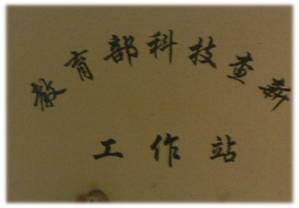 教育部科技查新
工作站